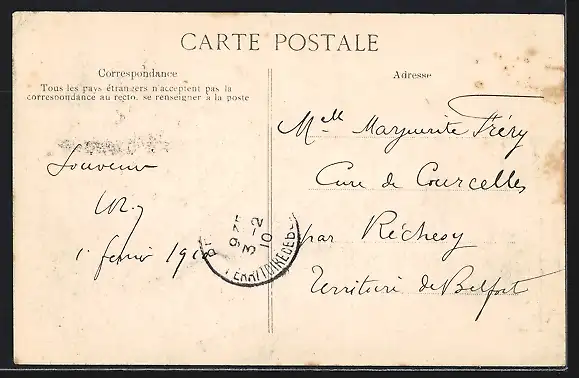 CARTE POSTALE
Correspondance
Tous les pays étrangers n'acceptent pas la
correspondance au recto. se renseigner à la poste
Adresse
Souvenir
1 fevrier 1910
Melle Marguerite Fréry
Cure de Courcelles
par Réchesy
Territoire de Belfort
3-2
10
TERRITOIRE DE BEL